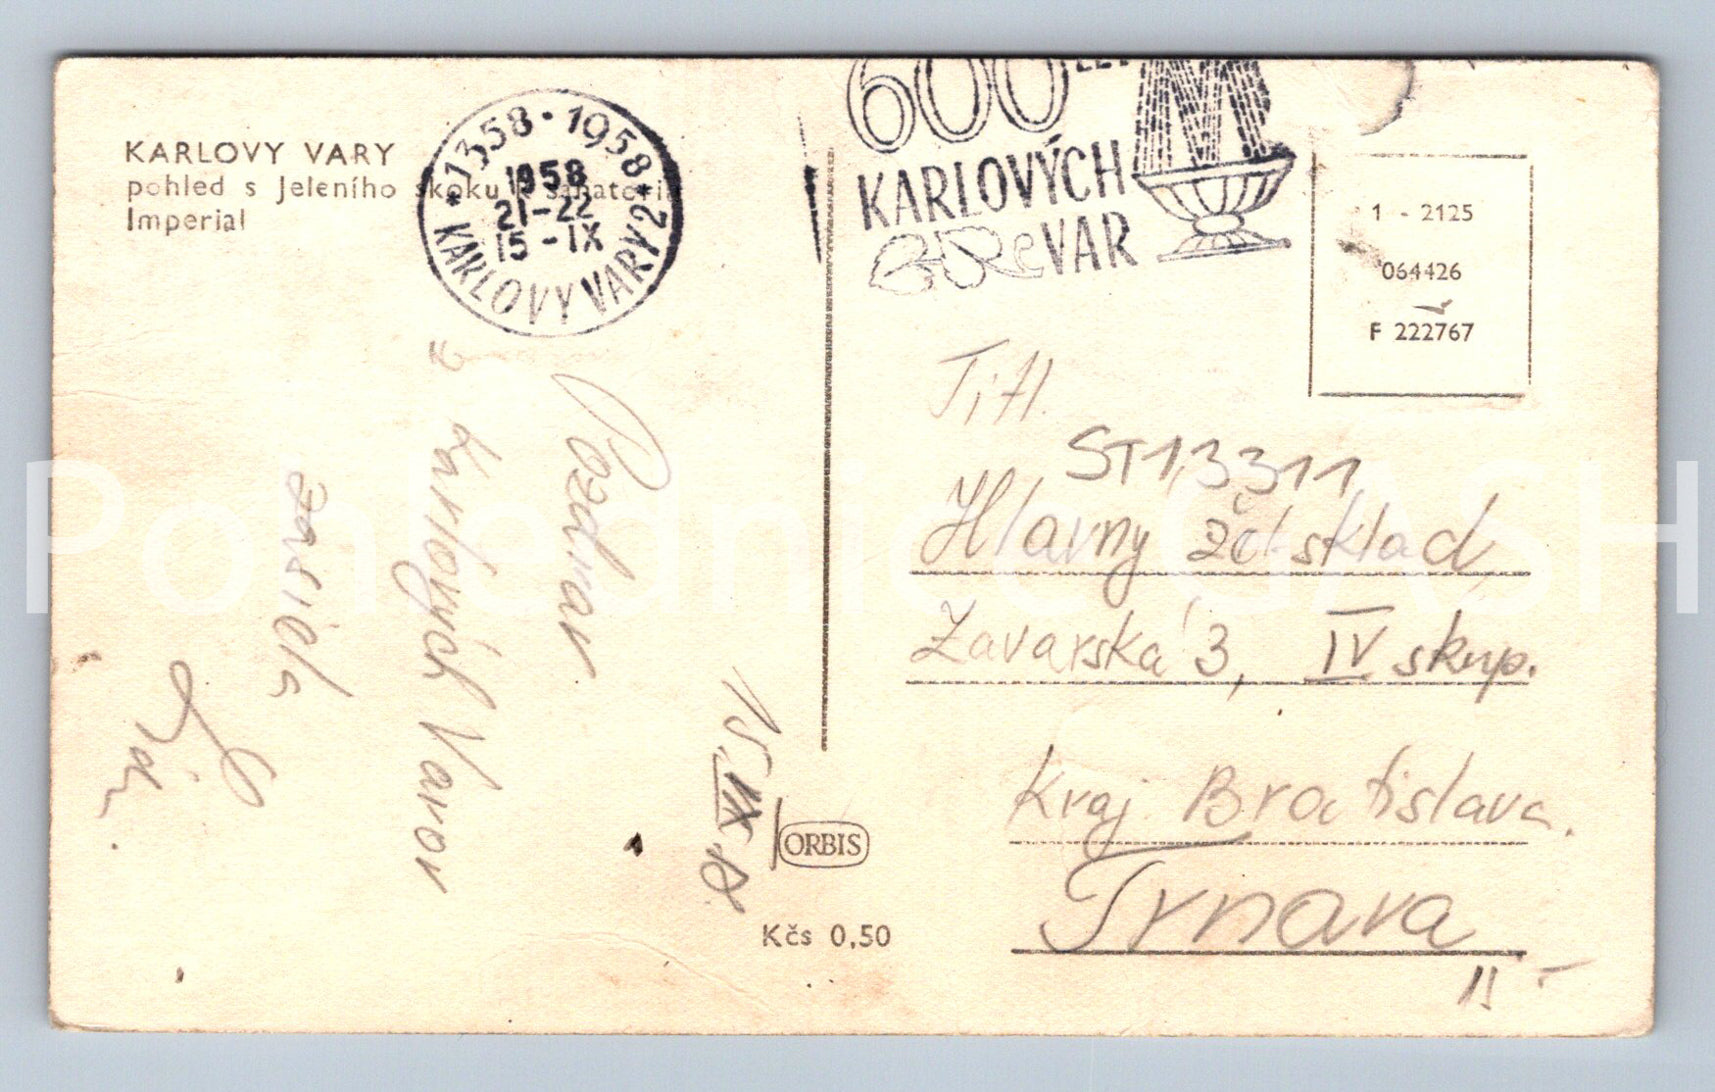 KARLOVY VARY
pohled s Jeleního skoku k sanatoriu
Imperial
1358 · 1958
1958
21-22
15-IX
* KARLOVY VARY 2 *
600 LET
KARLOVÝCH
VAR
1 - 2125
064426
F 222767
Titl.
ST 13311
Hlavny žel. sklad
Zavarská 3, IV skup.
Kraj Bratislava.
Trnava
II
Pozdrav
z Karlových Varov
zasiela
15.IX.58
ORBIS
Kčs 0,50
Pohlednice GASH